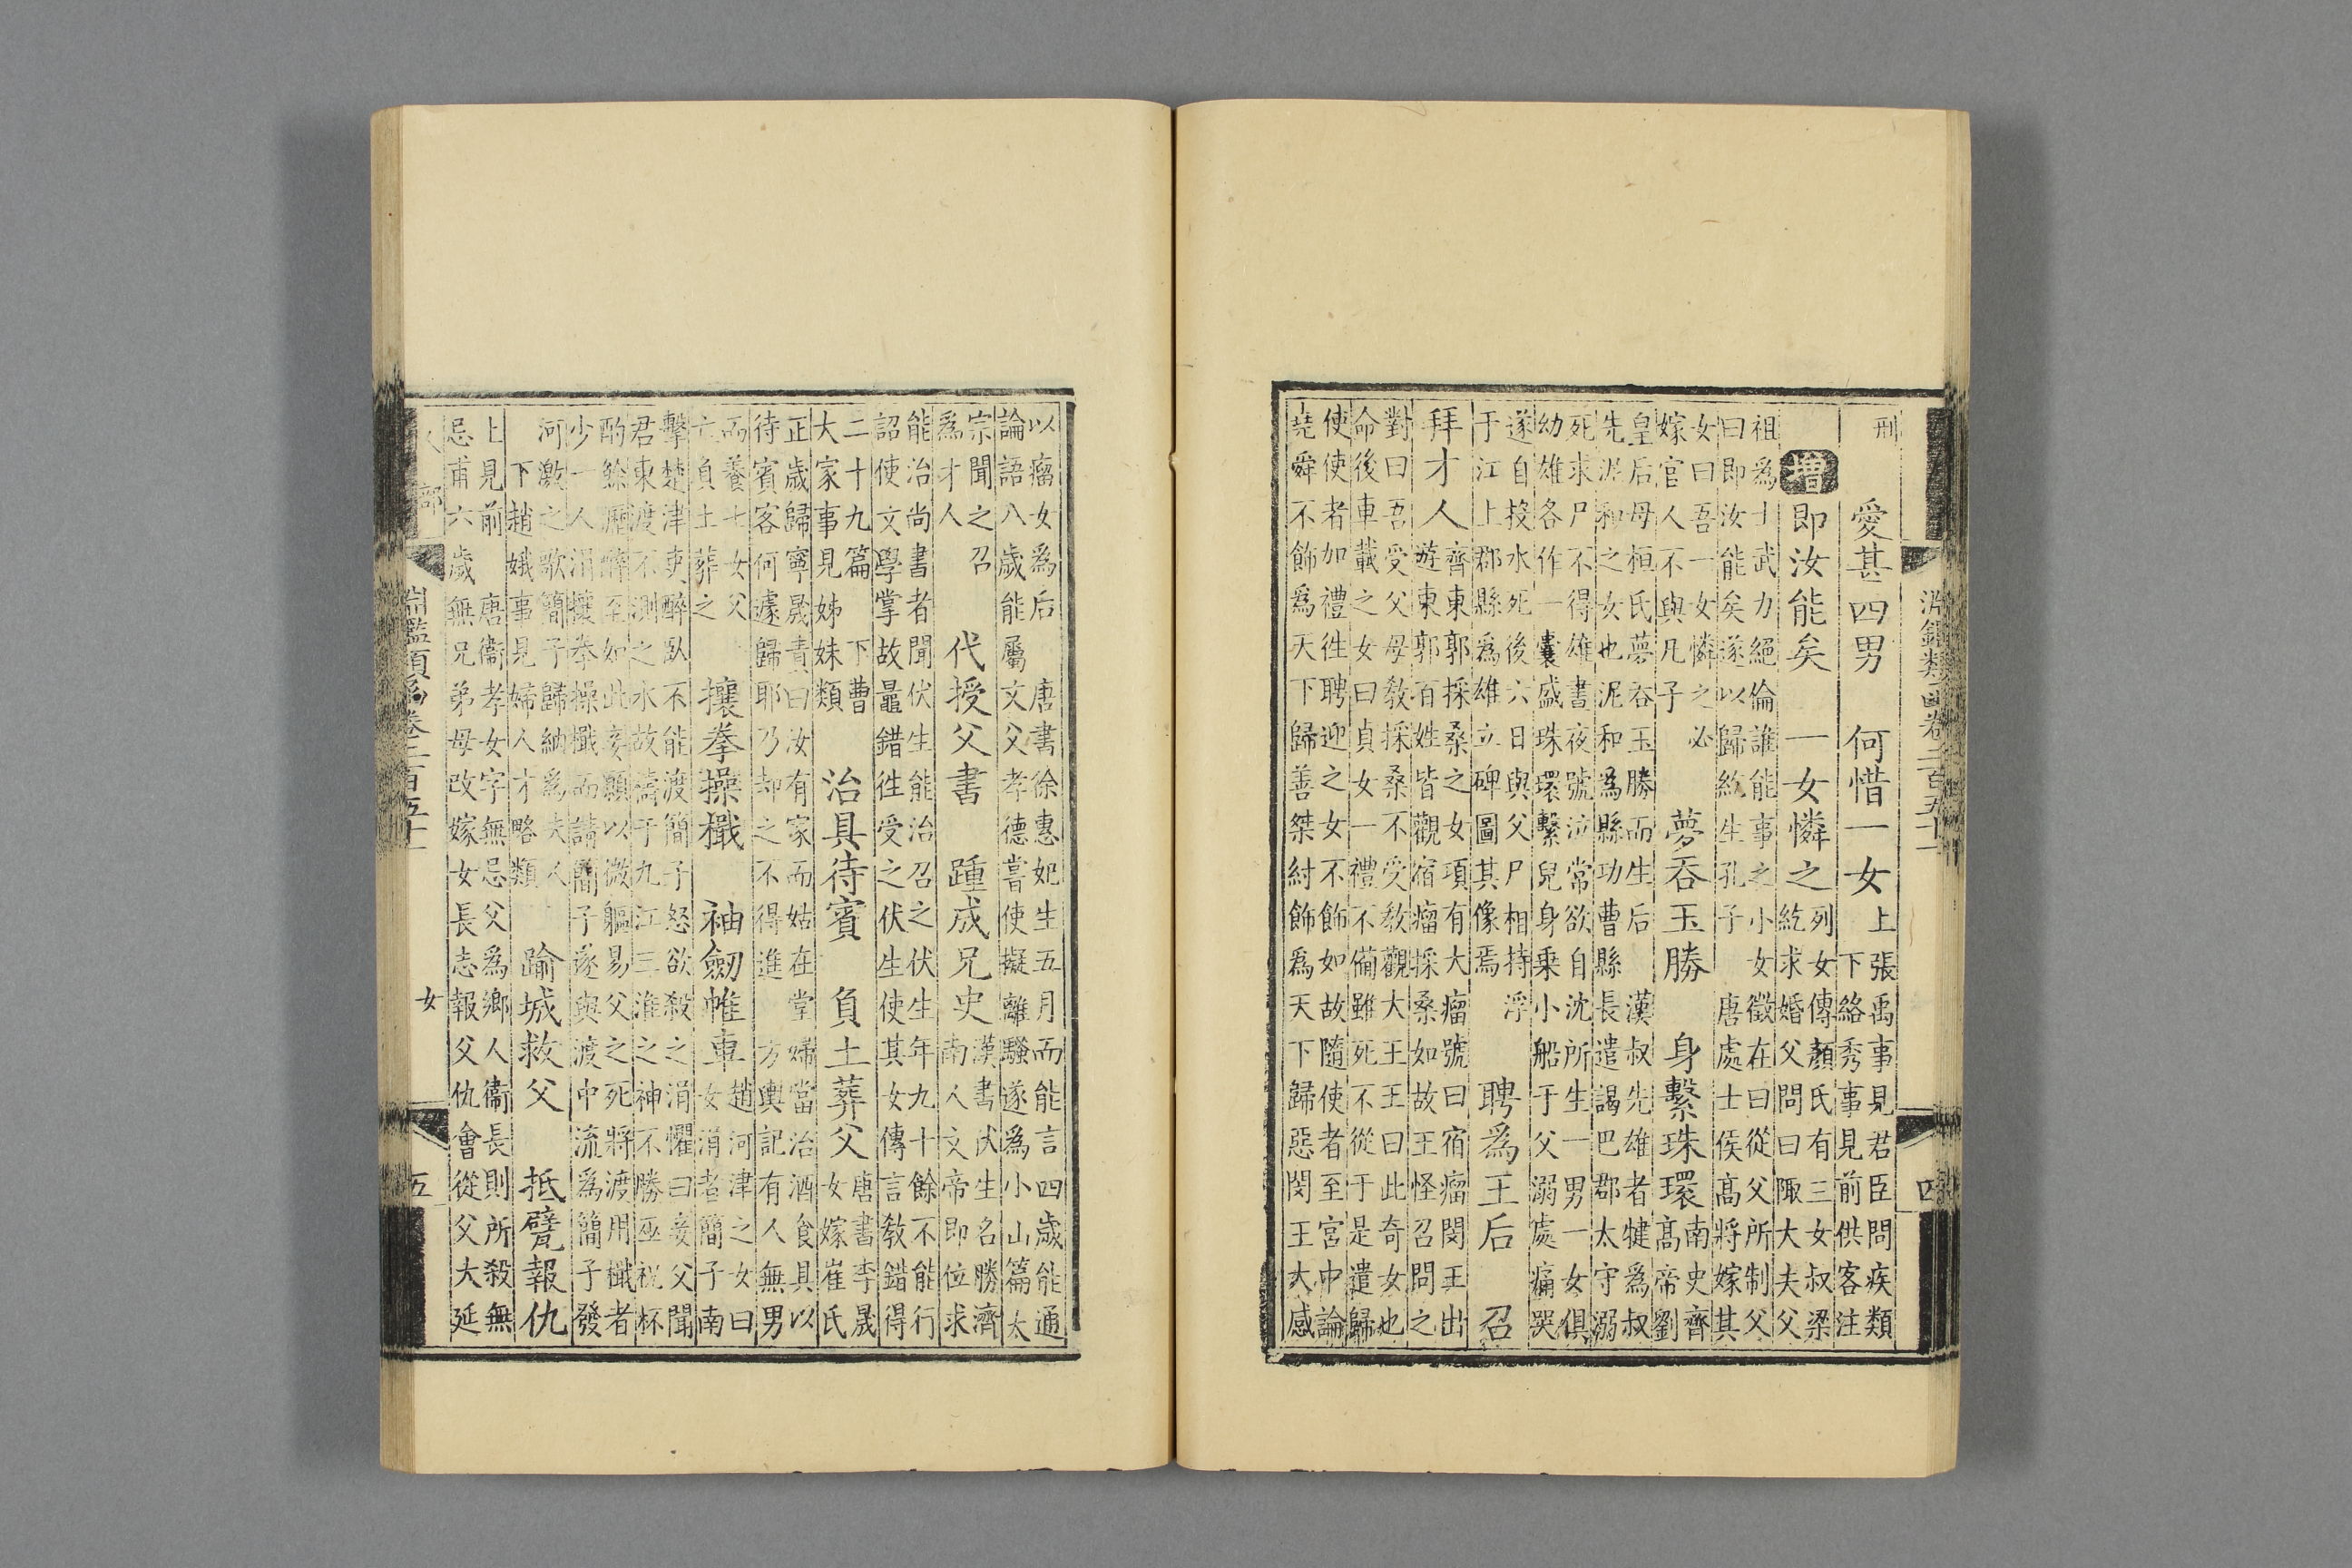 淵鑑類函卷二百五十一 四
刑
愛甚四男 何惜一女
上張禹事見君臣問疾類
下絡秀事見前供客注
增 即汝能矣 一女憐之
列女傳顏氏有三女叔梁
紇求婚父問曰陬大夫父
祖為士武力絕倫誰能事之小女徵在曰從父所制父
曰即汝能矣遂以歸紇生孔子 唐處士侯高將嫁其
女曰吾一女憐之必
嫁官人不與凡子
夢吞玉勝 身繫珠環
南史齊
高帝劉
皇后母桓氏夢吞玉勝而生后 漢叔先雄者犍為叔
先泥和之女也泥和為縣功曹縣長遣謁巴郡太守溺
死求尸不得雄書夜號泣常欲自沈所生一男一女俱
幼雄各作一囊盛珠環繫兒身乘小船于父溺處痛哭
遂自投水死後六日與父尸相持浮
于江上郡縣為雄立碑圖其像焉
聘為王后 召
拜才人
齊東郭採桑之女項有大瘤號曰宿瘤閔王出
遊東郭百姓皆觀宿瘤採桑如故王怪召問之
對曰吾受父母教採桑不受教觀大王王曰此奇女也
命後車載之女曰貞女一禮不備雖死不從于是遣歸
使使者加禮徃聘迎之女不飾如故隨使者至宮中論
堯舜不飾為天下歸善桀紂飾為天下歸惡閔王大感
以瘤女為后 唐書徐惠妃生五月而能言四歲能通
論語八歲能屬文父孝德嘗使擬離騷遂為小山篇太
宗聞之召
為才人
代授父書 踵成兄史
漢書伏生名勝濟
南人文帝即位求
能治尚書者聞伏生能治召之伏生年九十餘不能行
詔使文學掌故鼂錯徃受之伏生使其女傳言教錯得
二十九篇 下曹
大家事見姊妹類
治具待賓 負土葬父
唐書李晟
女嫁崔氏
正歲歸寧晟責曰汝有家而姑在堂婦當治酒食具以
待賓客何遽歸耶乃却之不得進 方輿記有人無男
而養七女父
亡負土葬之
攘拳操檝 袖劒帷車
趙河津之女曰
女涓者簡子南
擊楚津吏醉臥不能渡簡子怒欲殺之涓懼曰妾父聞
君東渡不測之水故禱于九江三淮之神不勝巫祝杯
酌餘瀝醉至如此妾願以微軀易父之死將渡用檝者
少一人涓攘拳操檝而請簡子遂與渡中流為簡子發
河激之歌簡子歸納為夫人
下趙娥事見婦人才略類
踰城救父 抵甓報仇
上見前 唐衞孝女字無忌父為鄉人衞長則所殺無
忌甫六歲無兄弟母改嫁女長志報父仇會從父大延
淵鑑類函卷二百五十一 女 五
人部